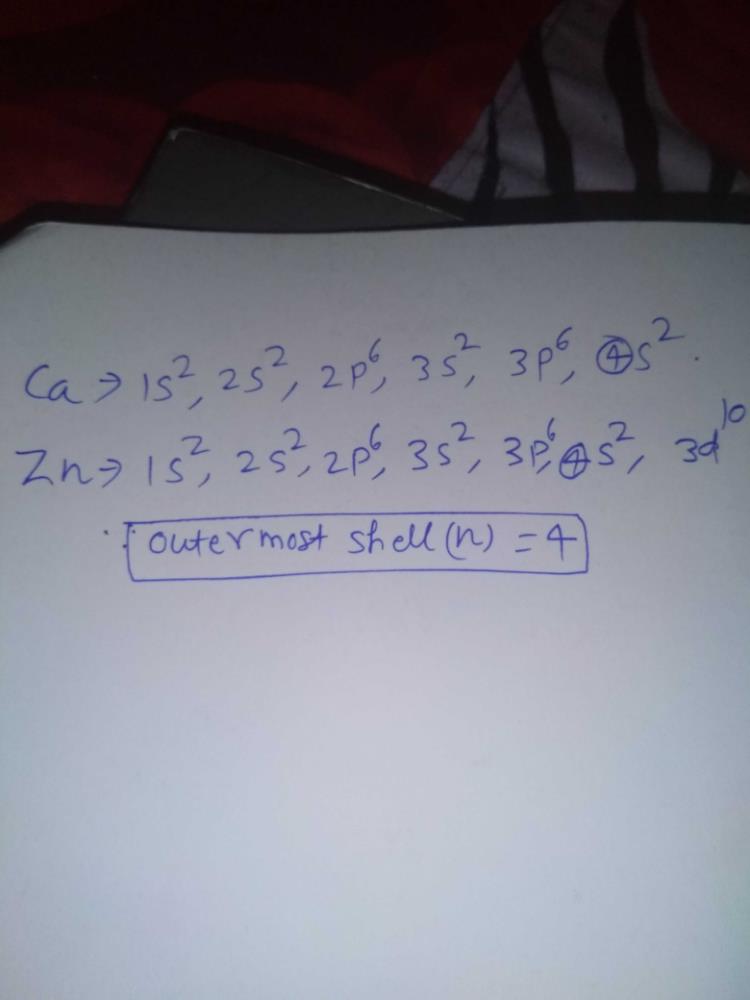 Ca → 1s², 2s², 2p⁶, 3s², 3p⁶, ④s².
Zn → 1s², 2s², 2p⁶, 3s², 3p⁶, ④s², 3d¹⁰
∴ outermost shell (n) = 4